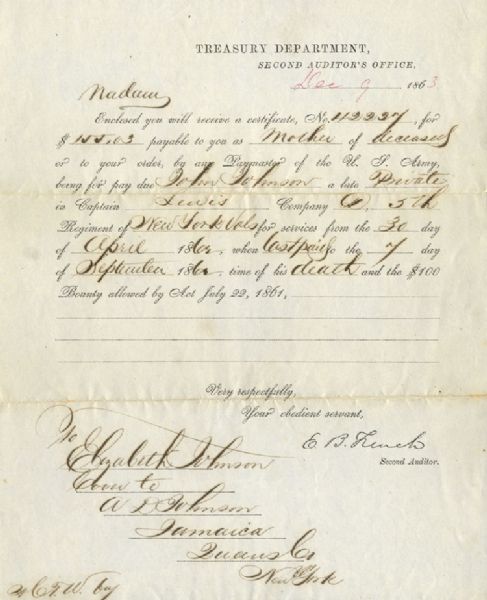 TREASURY DEPARTMENT,
SECOND AUDITOR'S OFFICE,
Dec 9 1863
Madam
Enclosed you will receive a certificate, No. 112227, for
$ 155.03 payable to you as Mother of deceased
or to your order, by any Paymaster of the U. S. Army,
being for pay due John Johnson a late Private
in Captain Lewis Company G. 5th
Regiment of New York Vols for services from the 30 day
of April 1862, when last paid to the 7 day
of September 1862, time of his death and the $100
Bounty allowed by Act July 22, 1861,
Very respectfully,
Your obedient servant,
E. B. French
Second Auditor.
To
Elizabeth Johnson
Care to
A D Johnson
Jamaica
Quans Co
New York